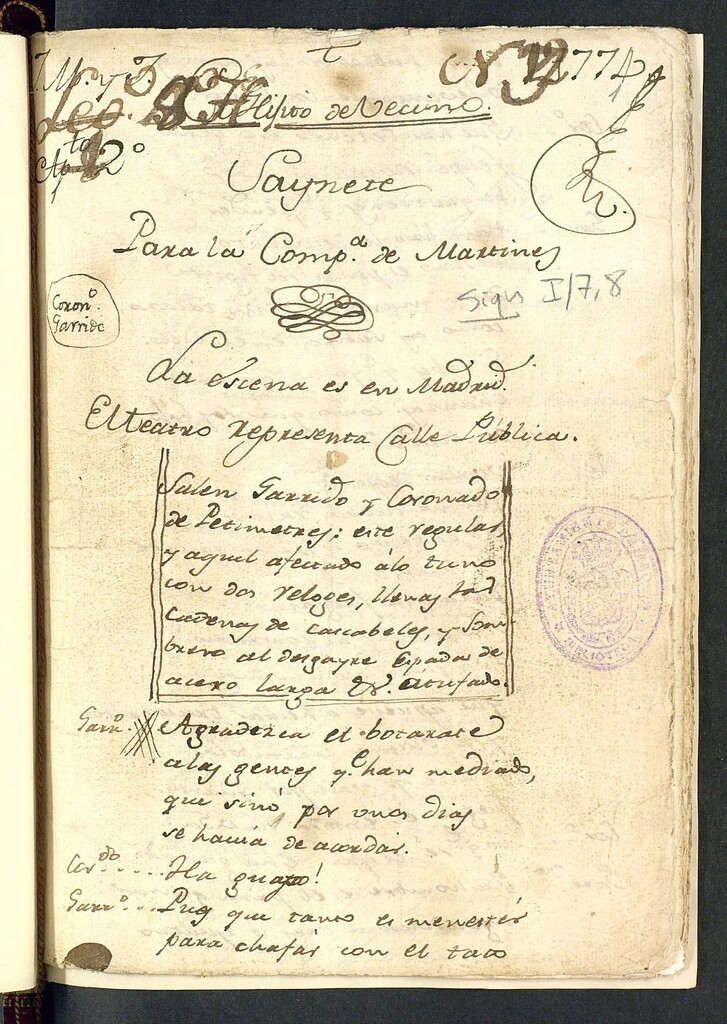 t
1774
El Hijito de Vecino.
2º
Saynete
Para la Comp.ª de Martinez
Coronº.
Garrido
Sigs I/7,8
La escena es en Madrid.
El teatro representa Calle Pública.
Salen Garrido y Coronado
de Petimetres: este regular,
y aquel afectado á lo tuno
con dos reloges, llenas las
cadenas de cascabeles, y som-
brero al desgayre Espada de
acero larga &. Atufado.
Garrº. Agradezca el botarate
a las gentes q.e han mediado,
que sinó por unos dias
se havia de acordar.
Cordo..... Ha guapo!
Garrº... Pues que tanto es menester
para chafar con el taco
BIBLIOTECA